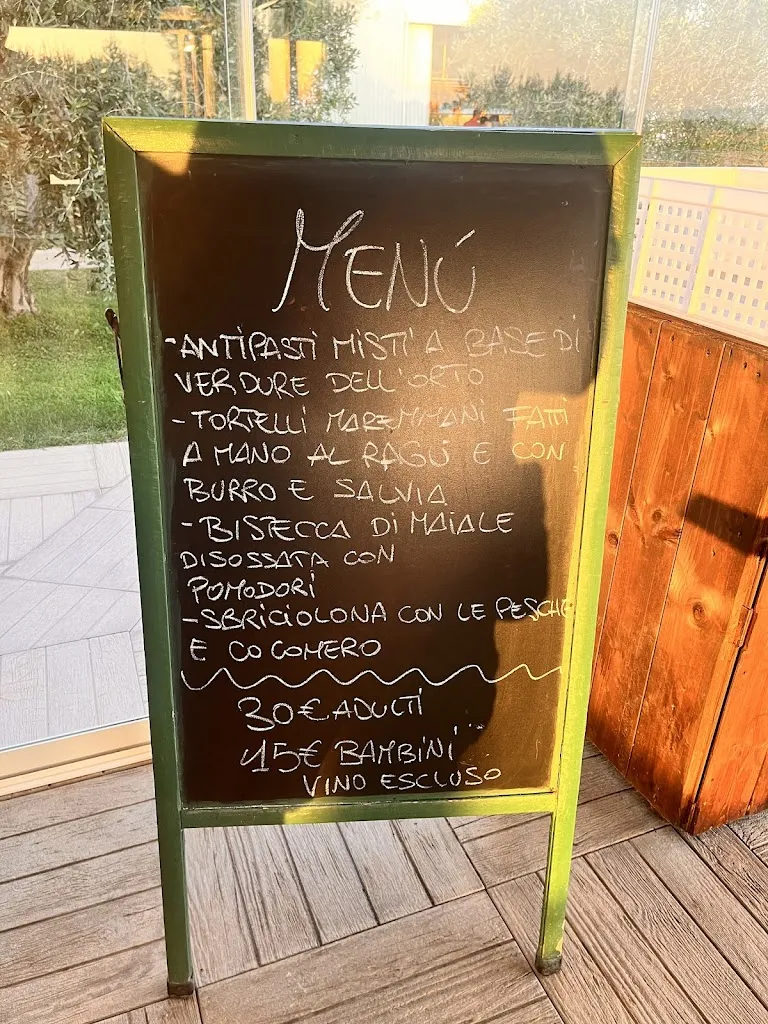 MENÚ
-ANTIPASTI MISTI A BASE DI
VERDURE DELL'ORTO
-TORTELLI MAREMMANI FATTI
A MANO AL RAGÚ E CON
BURRO E SALVIA
-BISTECCA DI MAIALE
DISOSSATA CON
POMODORI
-SBRICIOLONA CON LE PESCHE
E COCOMERO
30€ ADULTI
15€ BAMBINI
VINO ESCLUSO